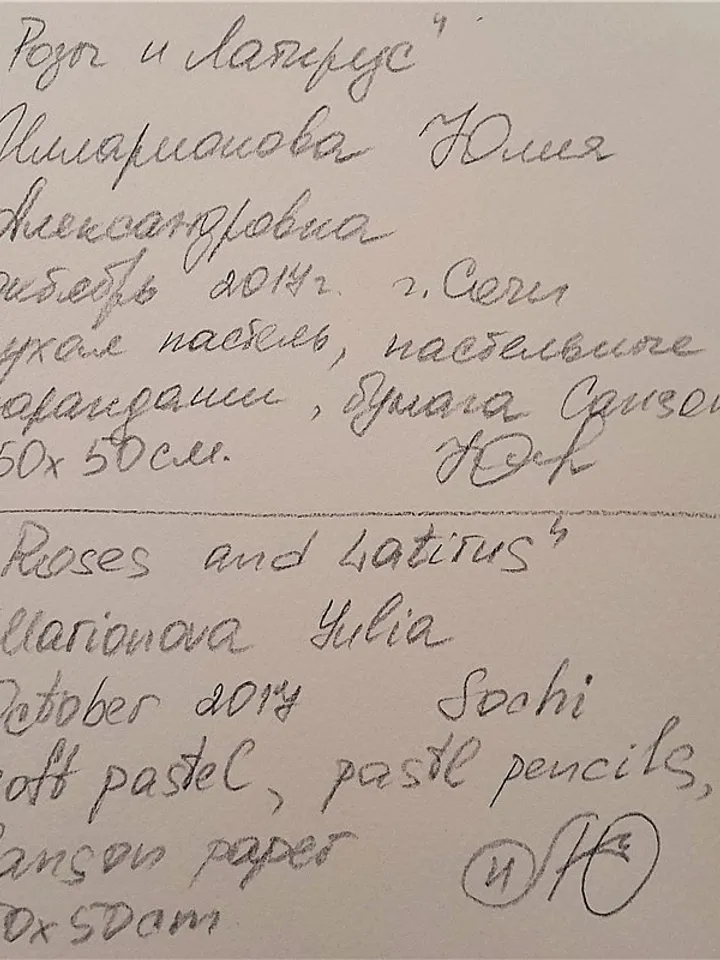 Розы и Латирус"
Илларионова Юлия
Александровна
октябрь 2017г. г. Сочи
ухая пастель, пастельные
арандаши, бумага Canson
50х 50см.
Roses and Latirus"
Illarionova Yulia
October 2017 Sochi
oft pastel, pastl pencils,
anson paper
50x50cm